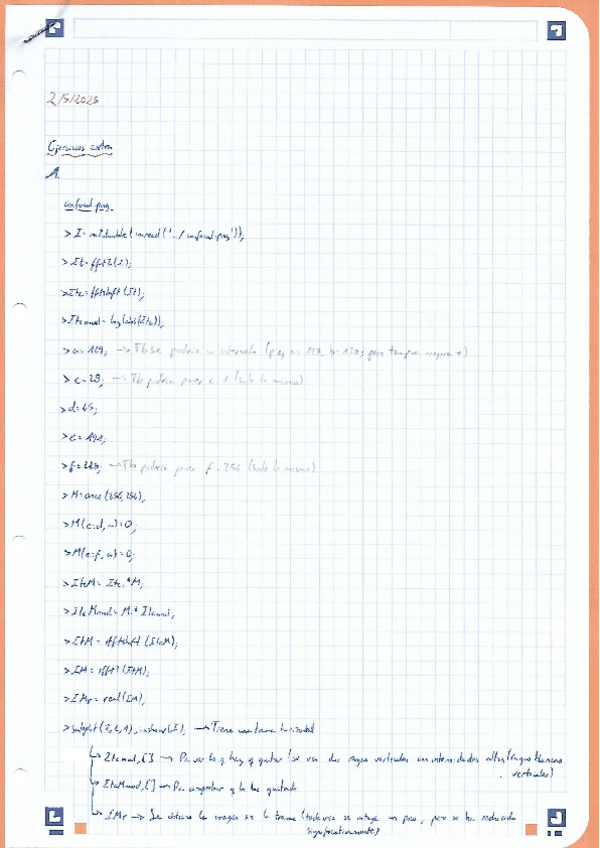 2/5/2025
Ejercicios extra
1.
confocal.png
> I = im2double(imread('../confocal.png'));
> It = fft2(I);
> Itc = fftshift(It);
> Itcmod = log(abs(Itc));
> a = 129; → Tb se podría un intervalo (p.ej, a = 128, b = 130; pero tampoco mejora +)
> c = 28; → Tb podría poner c = 1 (sale lo mismo)
> d = 65;
> e = 192;
> f = 228; → Tb podría poner f = 256 (sale lo mismo)
> M = ones(256,256);
> M(c:d, a) = 0;
> M(e:f, a) = 0;
> ItcM = Itc.*M;
> ItcMmod = M.*Itcmod;
> ItM = ifftshift(ItcM);
> IM = ifft2(ItM);
> IMr = real(IM);
> subplot(2,2,1), imshow(I); → Tiene una trama horizontal
Itcmod,[] → Pa ver lo q hay q quitar (se ven dos rayas verticales con intensidades altas (rayas blancas
verticales)
ItcMmod,[] → Pa comprobar q lo he quitado
IMr → Se obtiene la imagen sin la trama (todavía se intuye un poco, pero se ha reducido
significativamente)